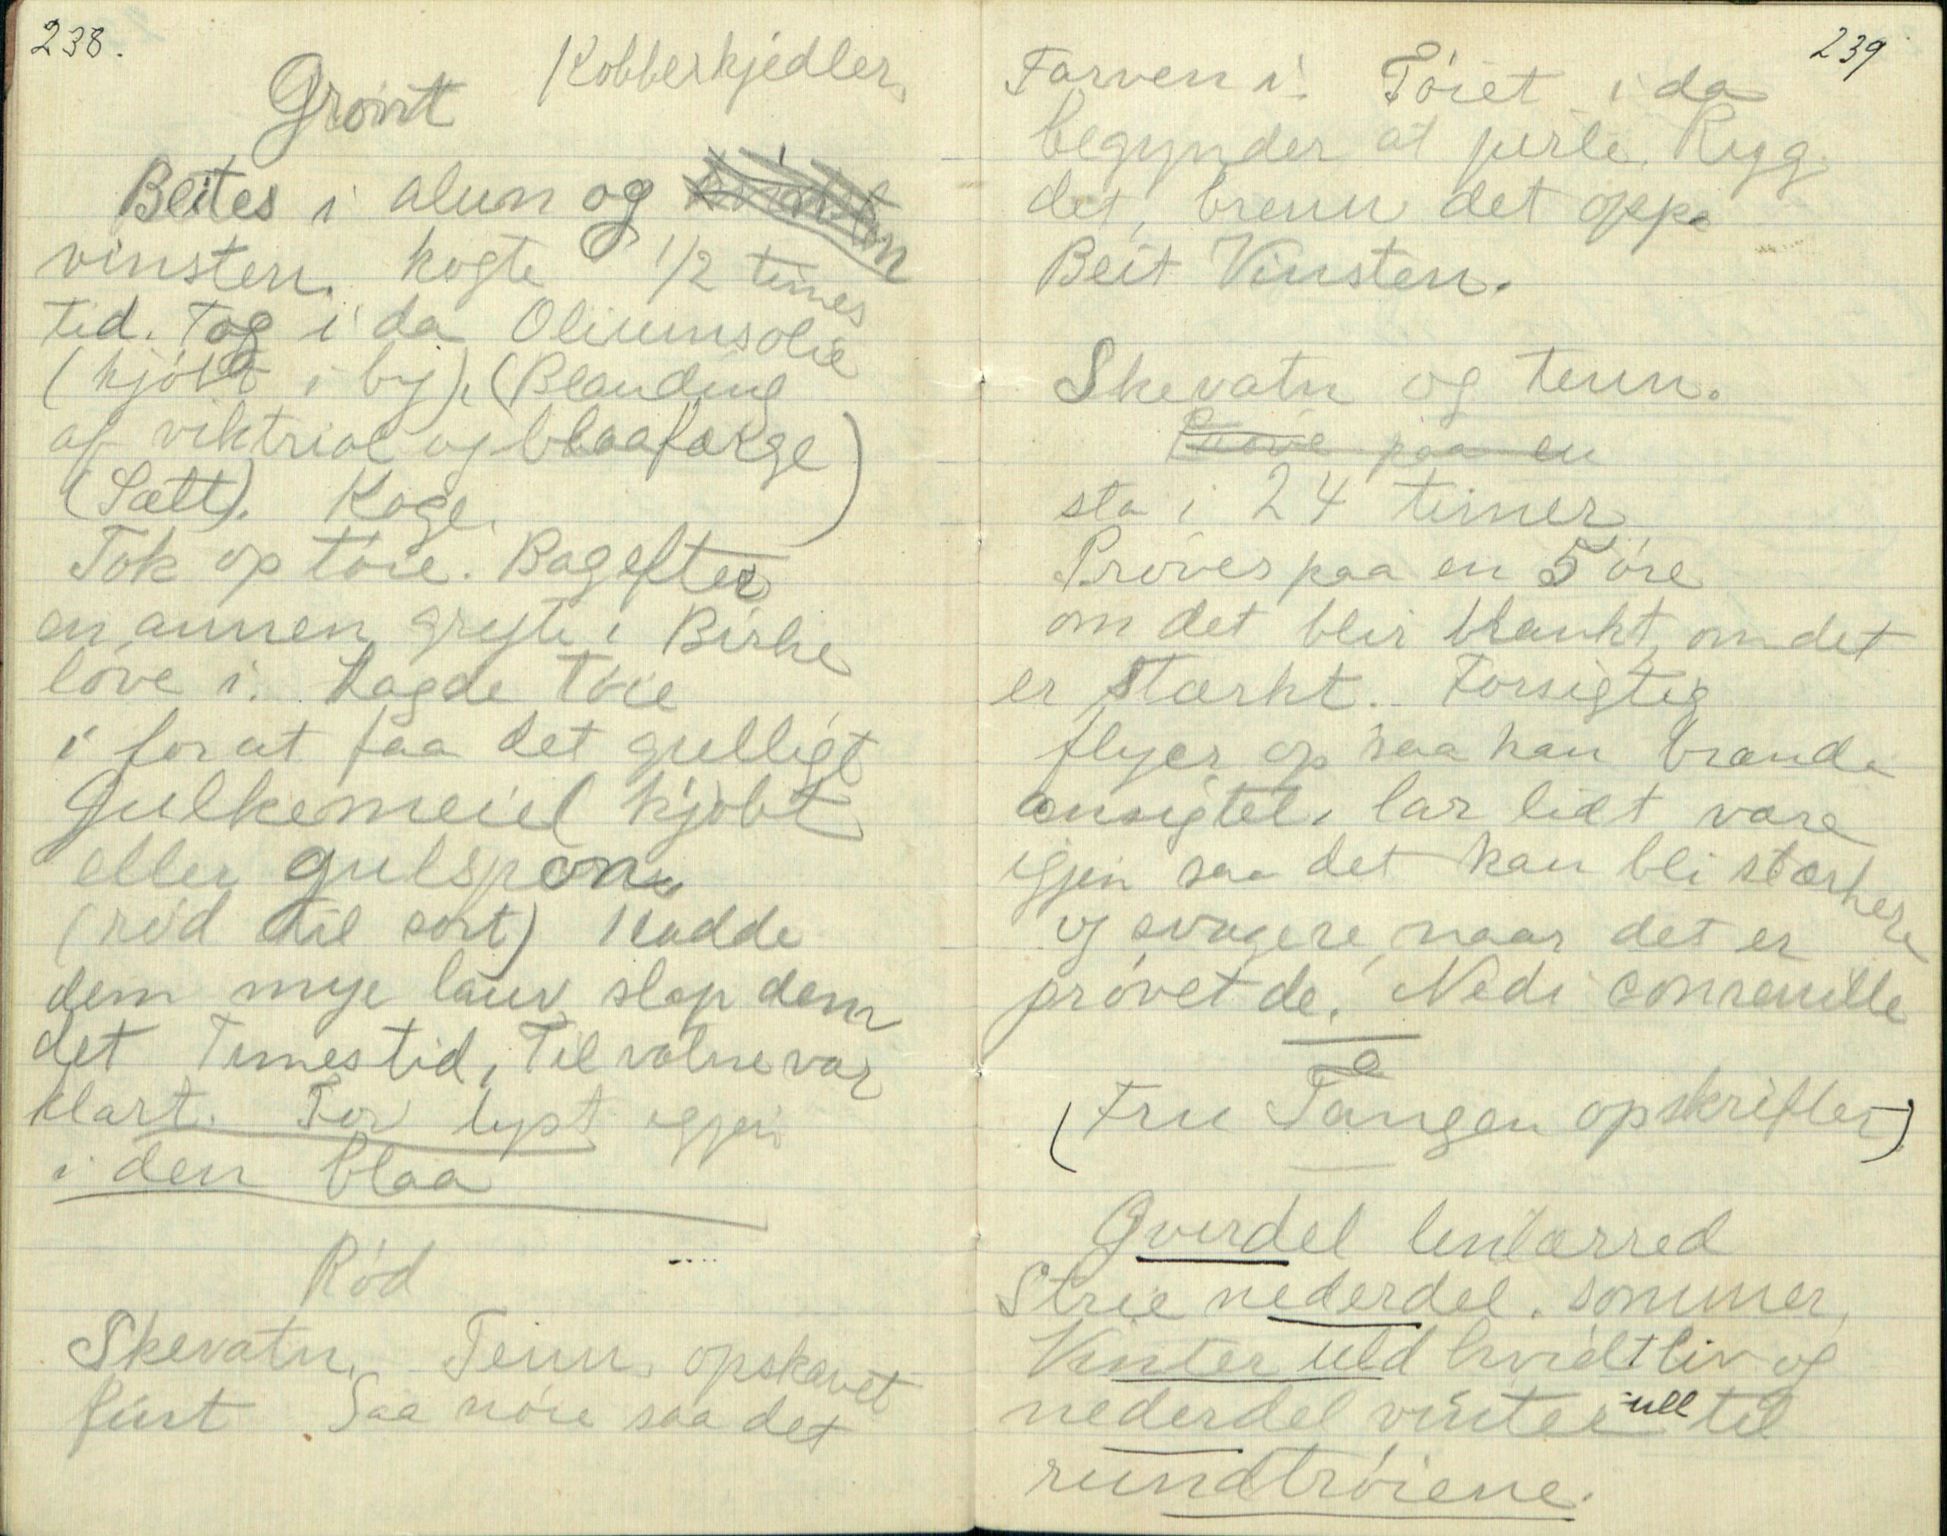 238.
Kobberkjedler
Grønt
Beites i alun og
vinsten. kogte 1/2 times
tid. Tog i da Oliumsolie
(kjøbt i by). (Blanding
af viktriol og blaafarge)
(Sætt). Koge.
Tok op tøie. Bagefter
en annen gryte i Birke
løve i. Lagde Tøie
i for at faa det gulligt
Gulkemeiel kjøbt
eller gulspon
(rød til sort) Hadde
dem mye lauv, slap dem
det Times tid, Til vatne var
klart. For lyst igjen
i den blaa
Rød
Skevatn. Tenn. opskavet
fint Saa nøie saa det
239
Farven i. Tøiet i da
begynder at perle. Ryg
det, brenn det opp.
Beit Vinsten.
Skevatn og tenn.
Prøve paa en
sta i 24 timer
Prøves paa en 5 øre
om det blir blankt, om det
er stærkt. Forsigtig
flyer op saa kan brande
ansigtet. lar lidt være
igjen saa det kan bli stærkere
og svagere, naar det er
prøvet de. Nedi conrenille
(Fru Tangen opskrifter)
Overdel linlærred
Strie nederdel. sommer,
Vinter uld hvidt liv og
nederdel vinter ull til
rundtrøiene.